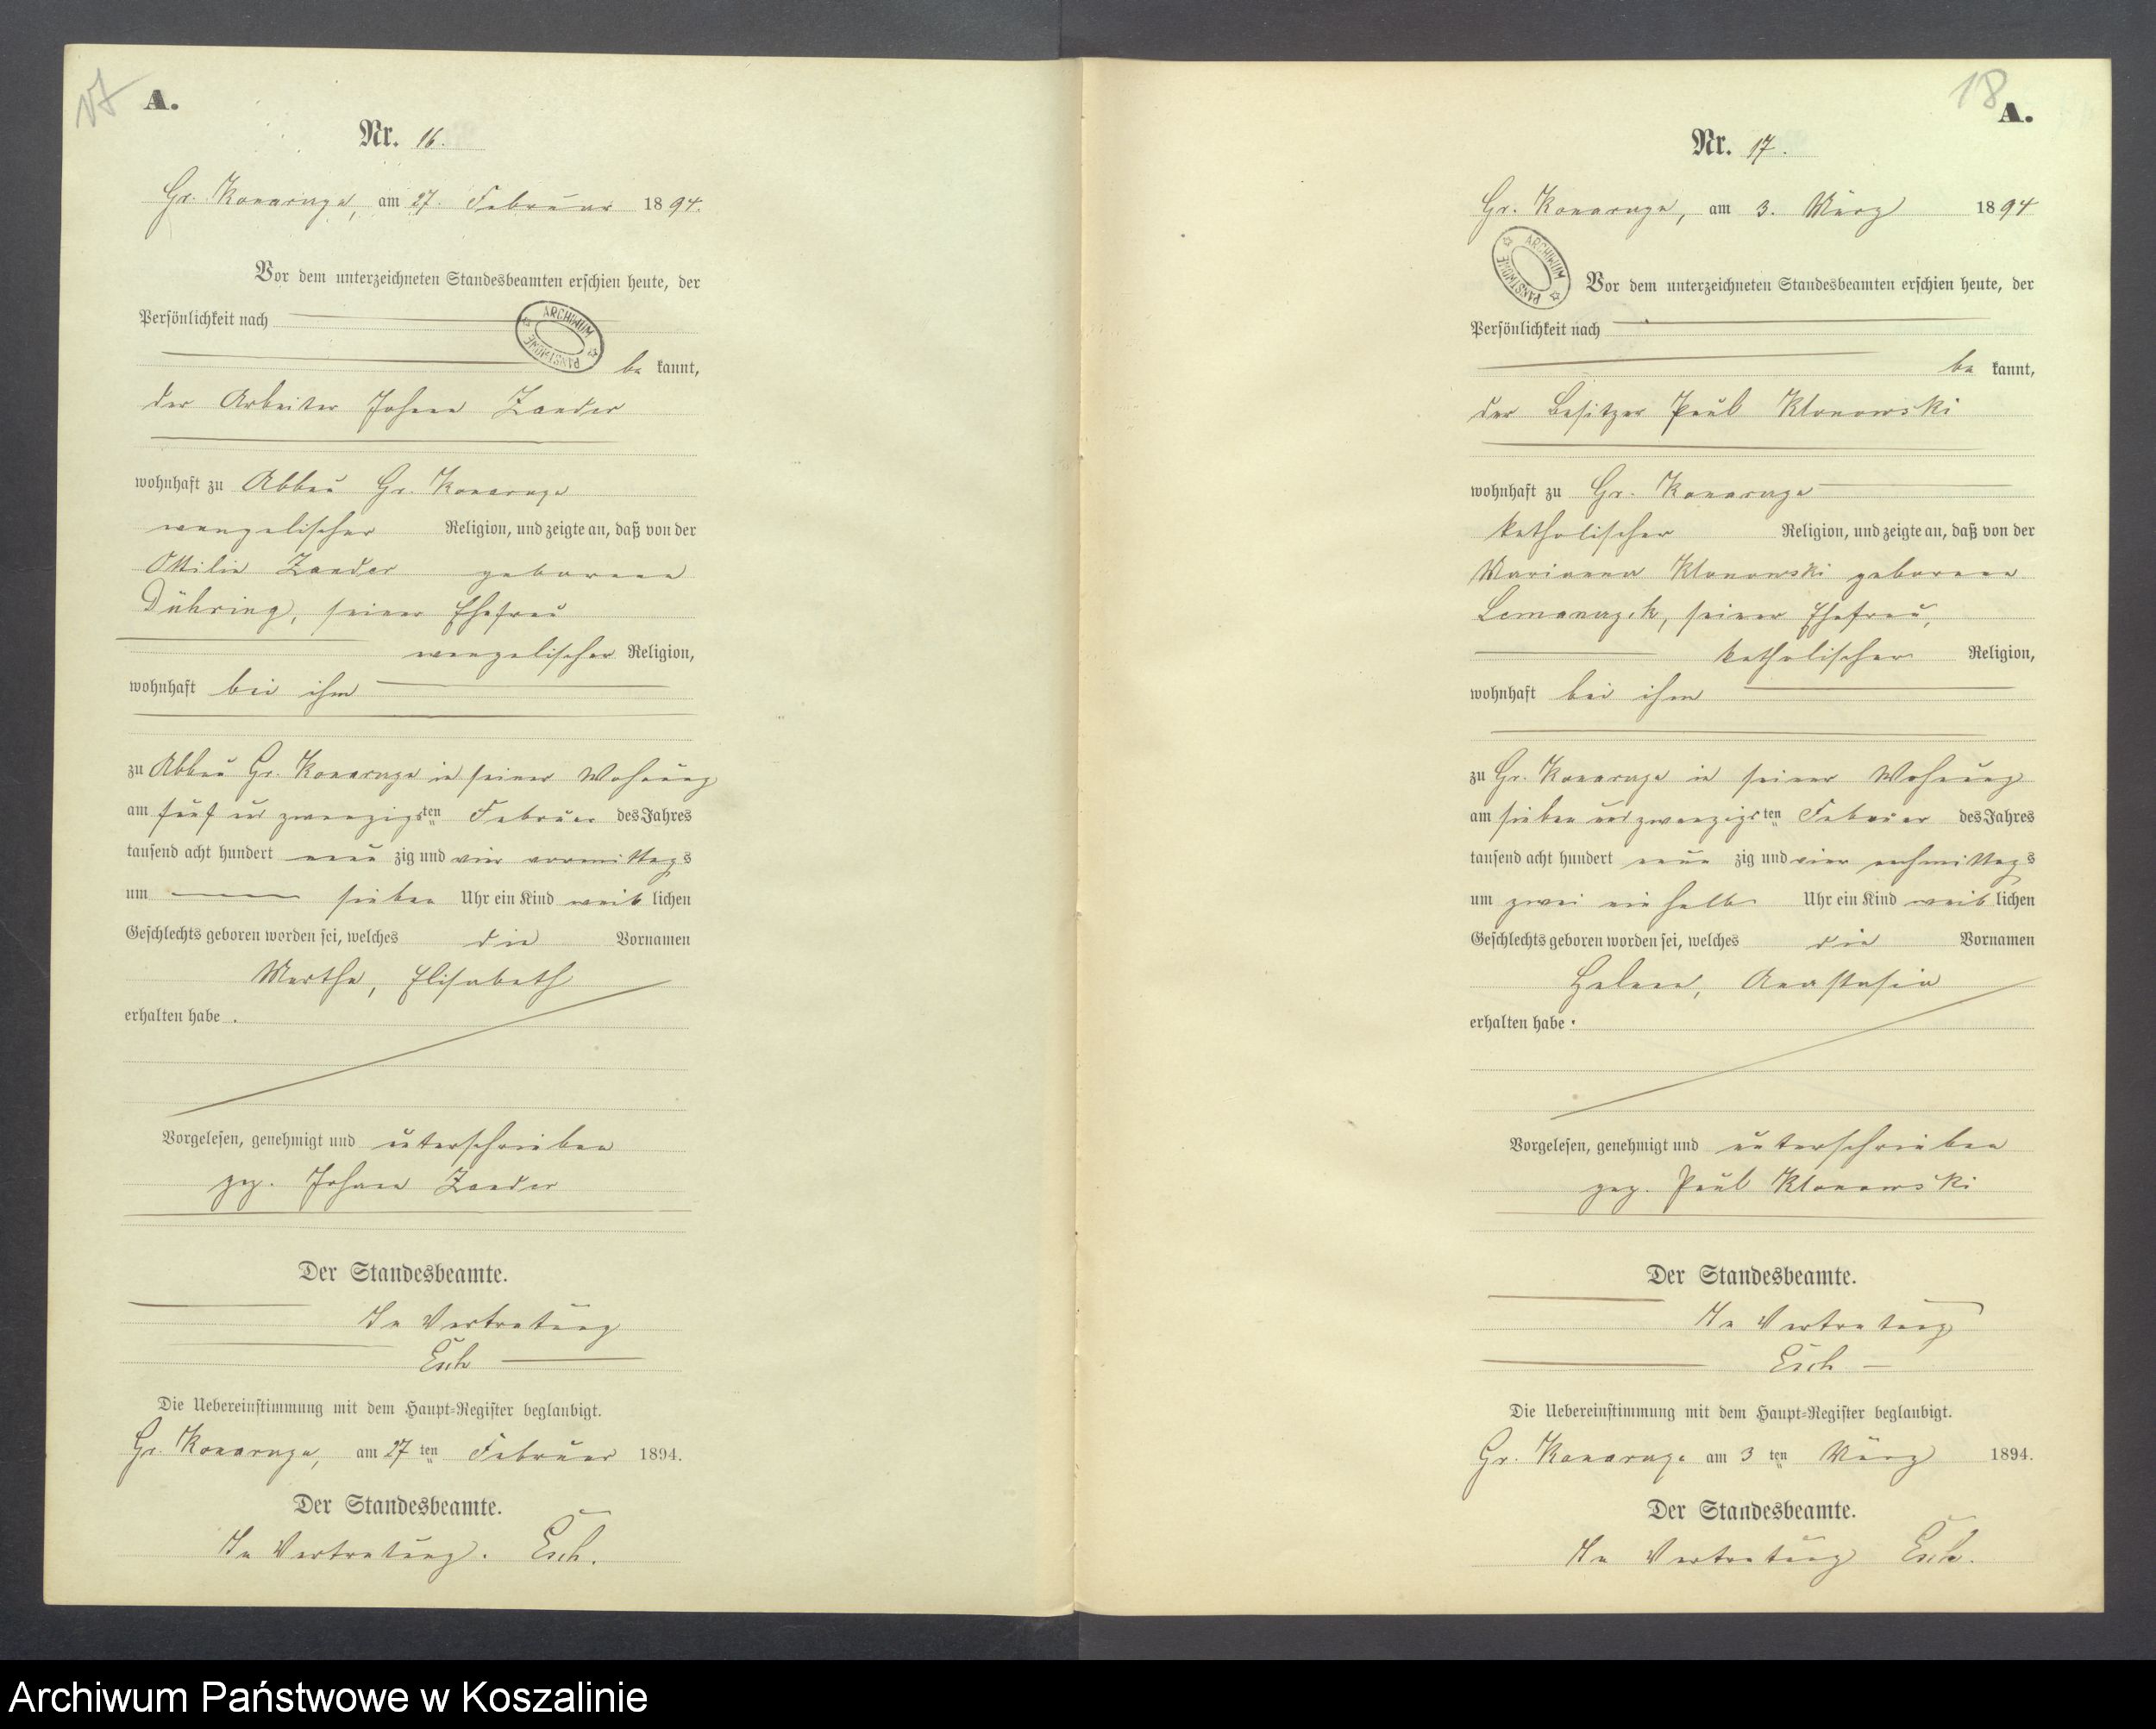 17
A.
Nr. 16.
Gr. Konarczyn, am 27. Februar 1894.
Vor dem unterzeichneten Standesbeamten erschien heute, der
Persönlichkeit nach
ARCHIWUM PAŃSTWOWE
be kannt,
der Arbeiter Johann Zander
wohnhaft zu Abbau Gr. Konarczyn
evangelischer Religion, und zeigte an, daß von der
Ottilie Zander geborenen
Dühring, seiner Ehefrau
evangelischer Religion,
wohnhaft bei ihm
zu Abbau Gr. Konarczyn in seiner Wohnung
am fünf und zwanzigsten Februar des Jahres
tausend acht hundert neun zig und vier vormittags
um sieben Uhr ein Kind weib lichen
Geschlechts geboren worden sei, welches die Vornamen
Martha, Elisabeth
erhalten habe.
Vorgelesen, genehmigt und unterschrieben
gez. Johann Zander
Der Standesbeamte.
In Vertretung
Esch
Die Uebereinstimmung mit dem Haupt-Register beglaubigt.
Gr. Konarczyn, am 27 ten Februar 1894.
Der Standesbeamte.
In Vertretung. Esch.
18
A.
Nr. 17.
Gr. Konarczyn, am 3. März 1894
ARCHIWUM PAŃSTWOWE
Vor dem unterzeichneten Standesbeamten erschien heute, der
Persönlichkeit nach
be kannt,
der Besitzer Paul Klonowski
wohnhaft zu Gr. Konarczyn
katholischer Religion, und zeigte an, daß von der
Marianna Klonowski geborenen
Lemanczyk, seiner Ehefrau,
katholischer Religion,
wohnhaft bei ihm
zu Gr. Konarczyn in seiner Wohnung
am sieben und zwanzigsten Februar des Jahres
tausend acht hundert neun zig und vier nachmittags
um zwei ein halb Uhr ein Kind weib lichen
Geschlechts geboren worden sei, welches die Vornamen
Helene, Anastasia
erhalten habe.
Vorgelesen, genehmigt und unterschrieben
gez. Paul Klonowski
Der Standesbeamte.
In Vertretung
Esch
Die Uebereinstimmung mit dem Haupt-Register beglaubigt.
Gr. Konarczyn am 3 ten März 1894.
Der Standesbeamte.
In Vertretung Esch.
Archiwum Państwowe w Koszalinie